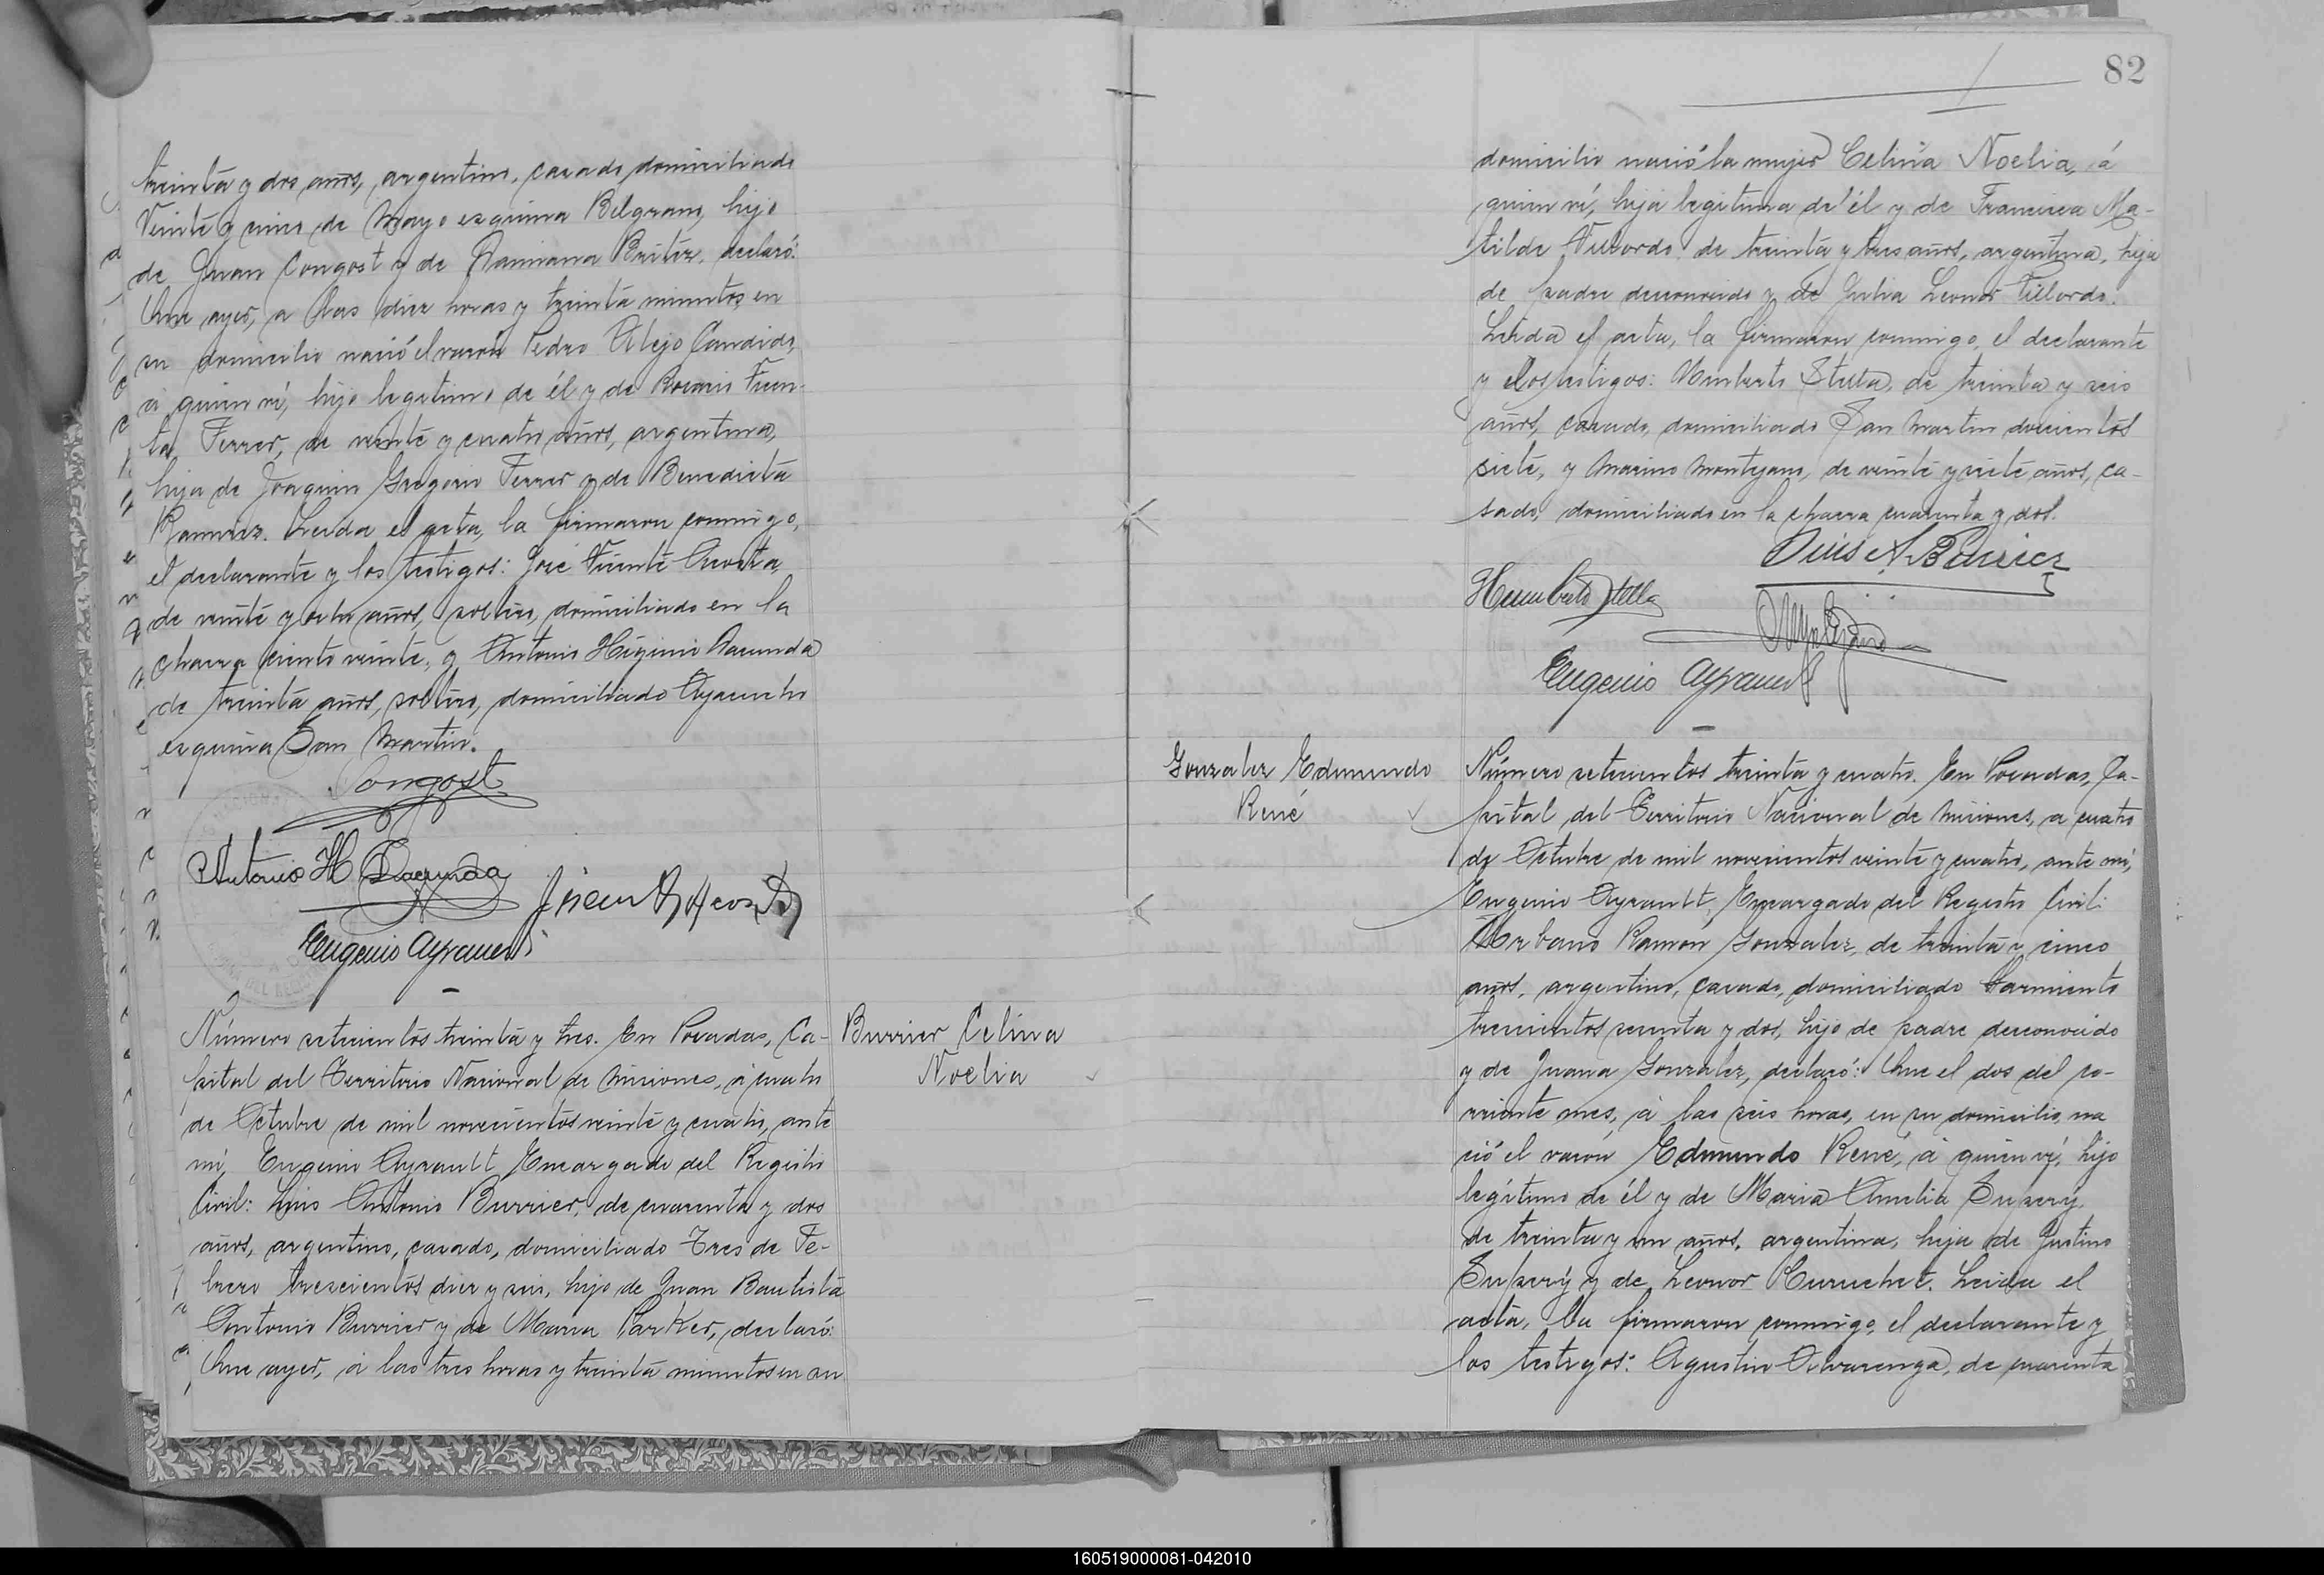 treinta y dos años, argentino, casado, domiciliado
Veinte y cinco de Mayo esquina Belgrano, hijo
de Juan Congost y de Damiana Britez, declaró:
Que ayer, a las diez horas y treinta minutos, en
su domicilio nació el varón Pedro Alejo Candido,
a quien ví, hijo legitimo de él y de Rosario
Ferrer, de veinte y cuatro años, argentina,
hija de Joaquin Gregorio Ferrer y de Benedicta
Ramirez. Leida el acta, la firmaron conmigo,
el declarante y los testigos: José Vicente Acosta,
de veinte y ocho años, soltero, domiciliado en la
chacra ciento veinte, y Antonio Higinio Dacunda
de treinta años, soltero, domiciliado Ayacucho
esquina San Martin.
Congost
Antonio H Dacunda
Eugenio Ayrault
Número setecientos treinta y tres. En Posadas, Ca-
pital del Territorio Nacional de Misiones, á cuatro
de Octubre de mil novecientos veinte y cuatro, ante
mí, Eugenio Ayrault, Encargado del Registro
Civil: Luis Antonio Burrier, de cuarenta y dos
años, argentino, casado, domiciliado Tres de Fe-
brero trescientos diez y seis, hijo de Juan Bautista
Antonio Burrier y de Maria Parker, declaró:
Que ayer, á las tres horas y treinta minutos en su
Burrier Celina
Noelia
82
domicilio nació la mujer Celina Noelia, á
quien ví, hija legitima de él y de Francisca Ma-
tilde de treinta y tres años, argentina, hija
de padre desconocido y de Julia Leonor
Leida el acta, la firmaron conmigo, el declarante
y los testigos: Humberto Stella, de treinta y seis
años, casado, domiciliado San Martin doscientos
siete, y Marino Montejano, de veinte y siete años, ca-
sado, domiciliado en la chacra cuarenta y dos.
Luis A. Burrier
Humberto Stella
Eugenio Ayrault
Gonzalez Edmundo
René
Número setecientos treinta y cuatro. En Posadas, Ca-
pital del Territorio Nacional de Misiones, a cuatro
de Octubre de mil novecientos veinte y cuatro, ante mí,
Eugenio Ayrault, Encargado del Registro Civil:
Urbano Ramón Gonzalez, de treinta y cinco
años, argentino, casado, domiciliado Sarmiento
trescientos sesenta y dos, hijo de padre desconocido
y de Juana Gonzalez, declaró: Que el dos del co-
rriente mes, á las seis horas, en su domicilio, na
ció el varón Edmundo René, á quien ví, hijo
legítimo de él y de Maria Amelia Supery,
de treinta y un años, argentina, hija de Justino
Supery y de Leonor Curuchet. Leida el
acta, la firmaron conmigo, el declarante y
los testigos: Agustin Alvarenga, de cuarenta
160519000081-042010